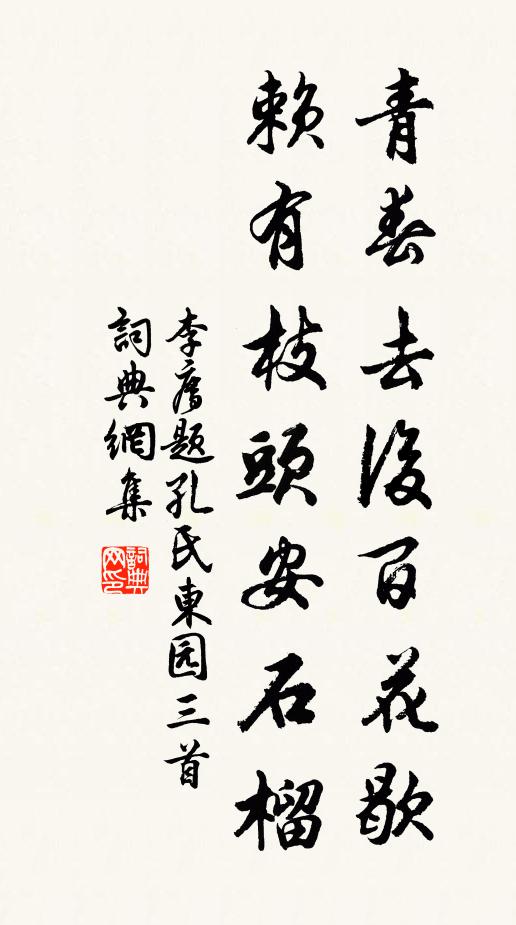 青春去後百花歇
賴有枝頭安石榴
李廌題孔氏東园三首
詞典網集
詞典网印